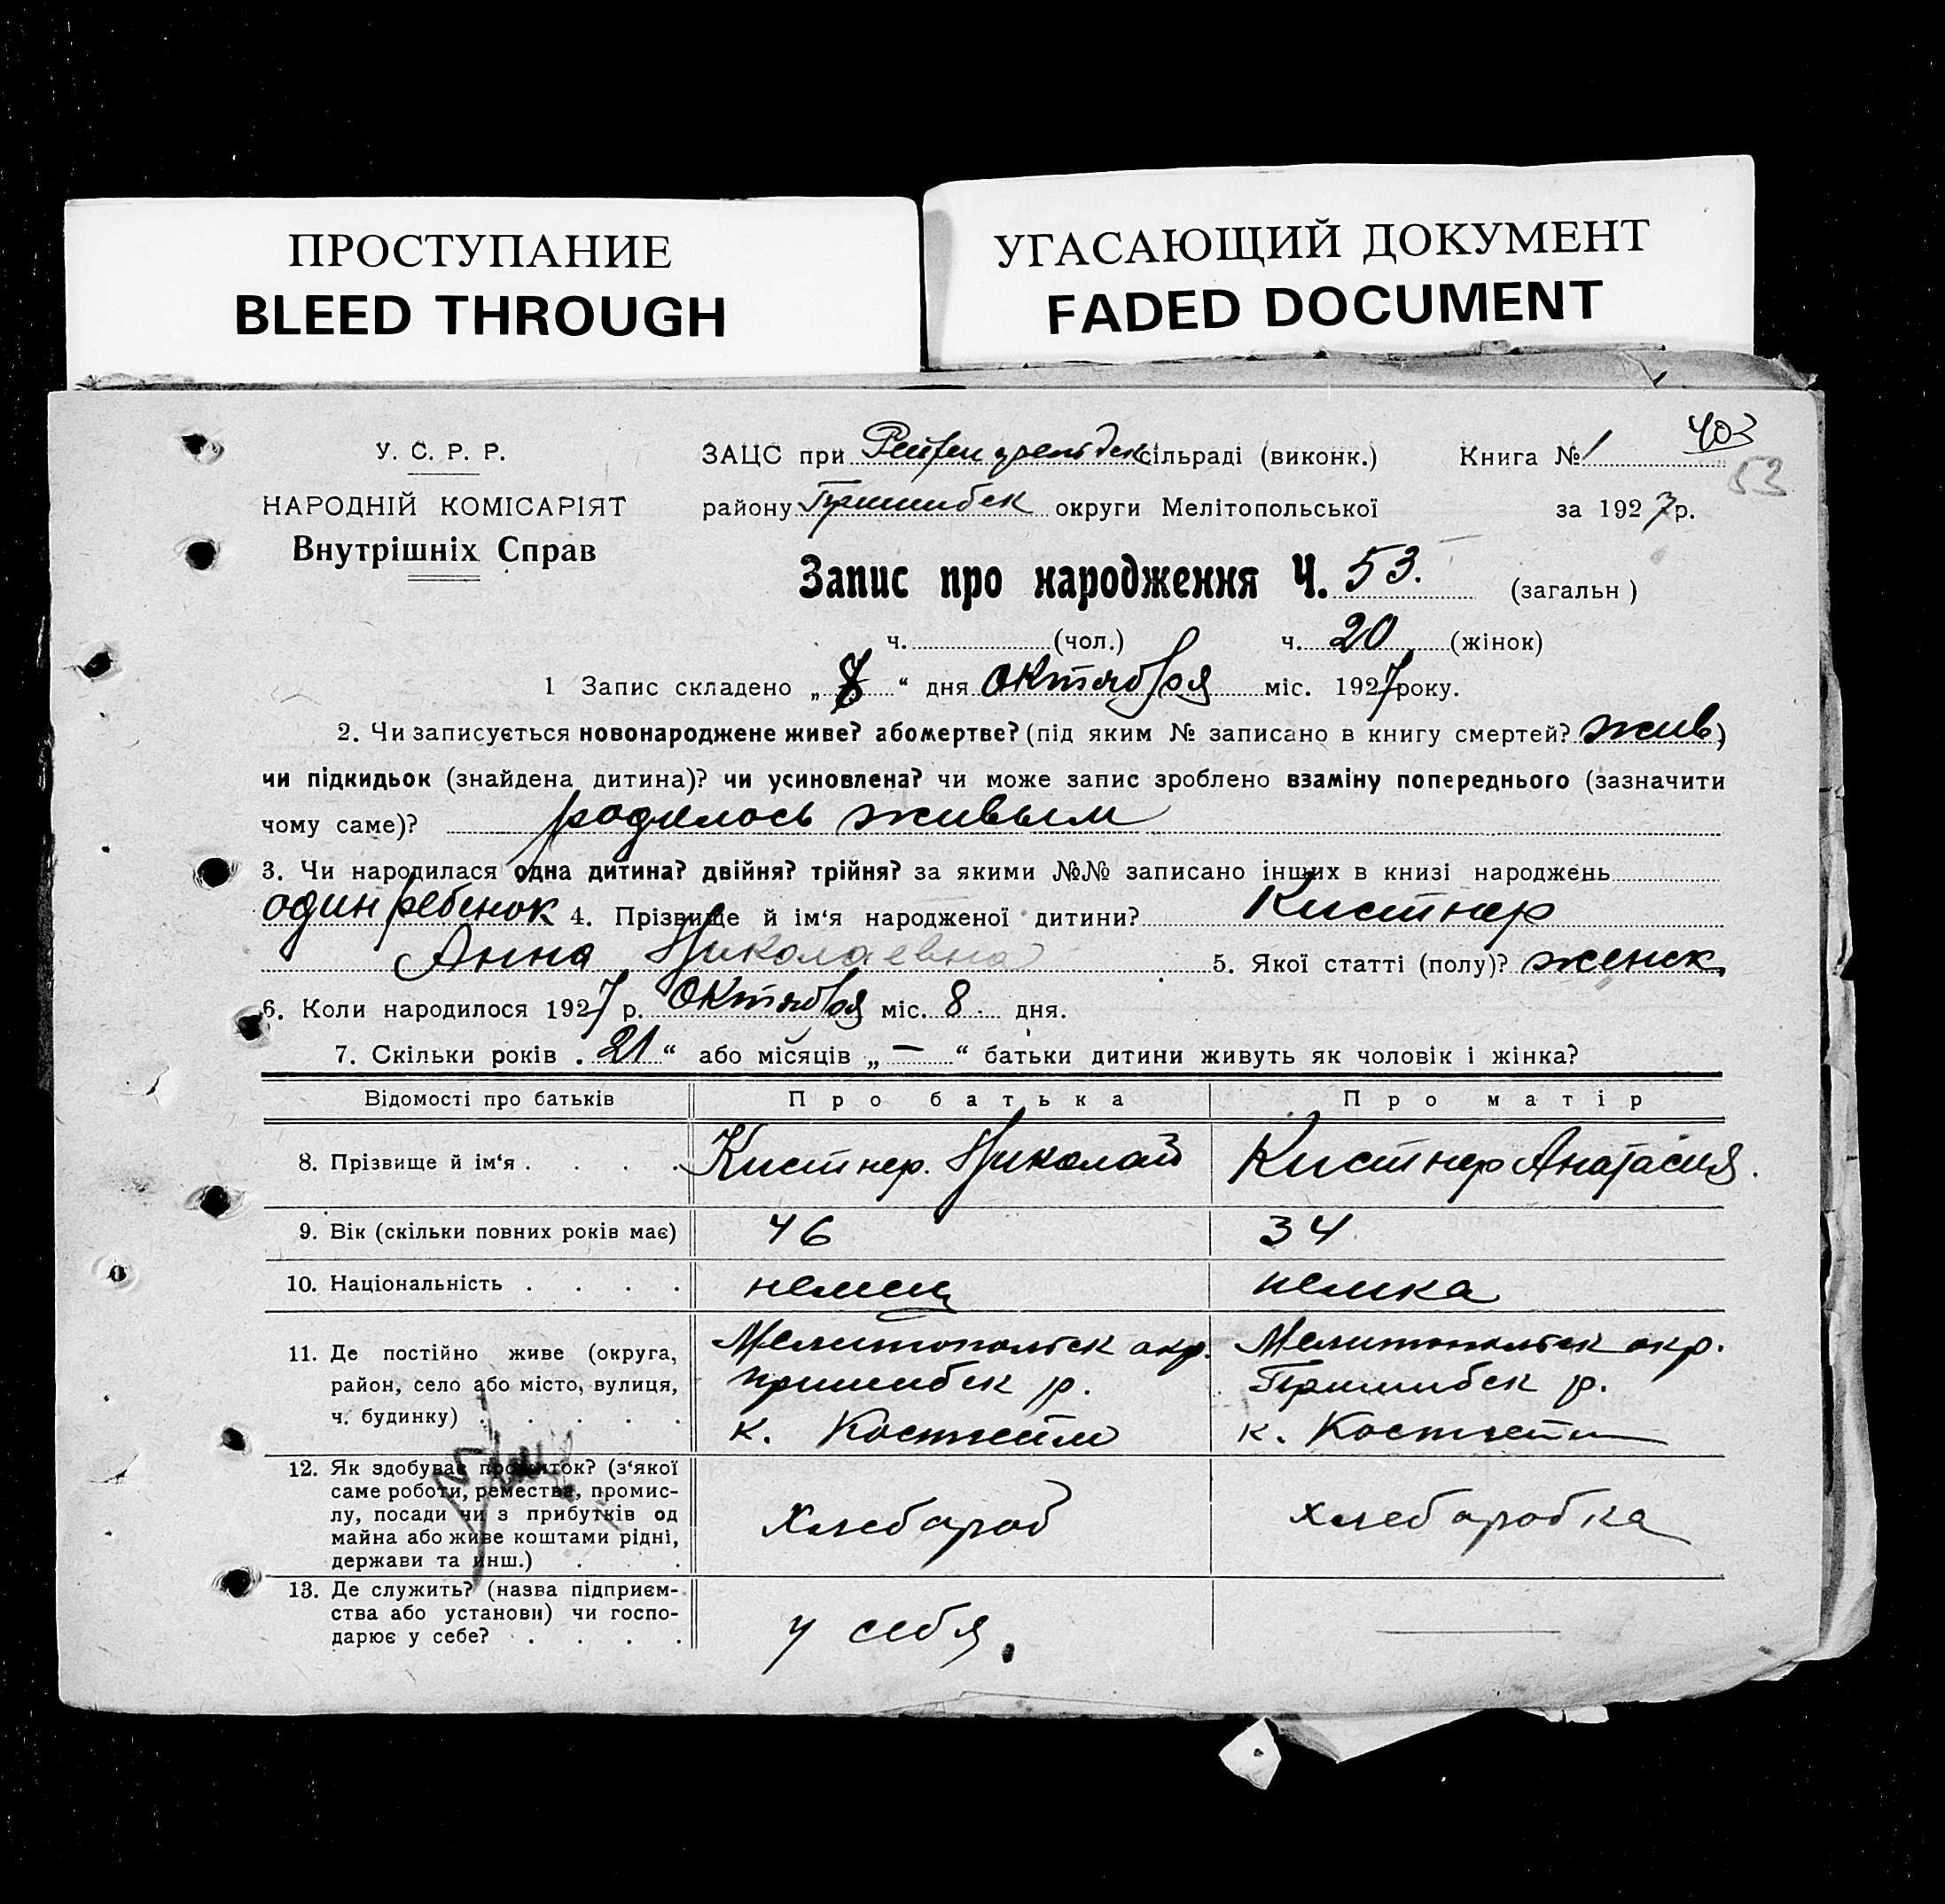 ПРОСТУПАНИЕ
BLEED THROUGH
УГАСАЮЩИЙ ДОКУМЕНТ
FADED DOCUMENT
403
53
У. С. Р. Р.
НАРОДНІЙ КОМІСАРІЯТ
Внутрішніх Справ
ЗАЦС при сільраді (виконк.) Книга № 1
району Пришибск округи Мелітопольської за 1927 р.
Запис про народження Ч. 53. (загальн )
ч. (чол.) ч. 20 (жінок)
1 Запис складено „ “ дня Октября міс. 1927 року.
2. Чи записується новонароджене живе? або мертве? (під яким № записано в книгу смертей? жив)
чи підкидьок (знайдена дитина)? чи усиновлена? чи може запис зроблено взаміну попереднього (зазначити
чому саме)? родилось живым
3. Чи народилася одна дитина? двійня? трійня? за якими №№ записано інших в книзі народжень
один ребенок 4. Прізвище й ім‘я народженої дитини? Кистнер
Анна Николаевна 5. Якої статті (полу)? женск.
6. Коли народилося 1927 р. Октября міс. 8 дня.
7. Скільки років . 21 “ або місяців „ — “ батьки дитини живуть як чоловік і жінка?
Відомості про батьків Про батька Про матір
8. Прізвище й ім‘я . . . . Кистнер. Николай Кистнер Анатасия.
9. Вік (скільки повних років має) 46 34
10. Національність . . . . немец немка
11. Де постійно живе (округа, Мелитопольск окр. Мелитопольск окр.
район, село або місто, вулиця, пришибск р. Пришибск р.
ч. будинку) . . . . . к. Костгейм к. Костгейм
12. Як здобуває прожиток? (з‘якої
саме роботи, ремества, промис-
лу, посади чи з прибутків од Хлебороб хлеборобка
майна або живе коштами рідні,
держави та инш.) . .
13. Де служить? (назва підприєм-
ства або установи) чи госпо- у себя.
дарює у себе? . . . .